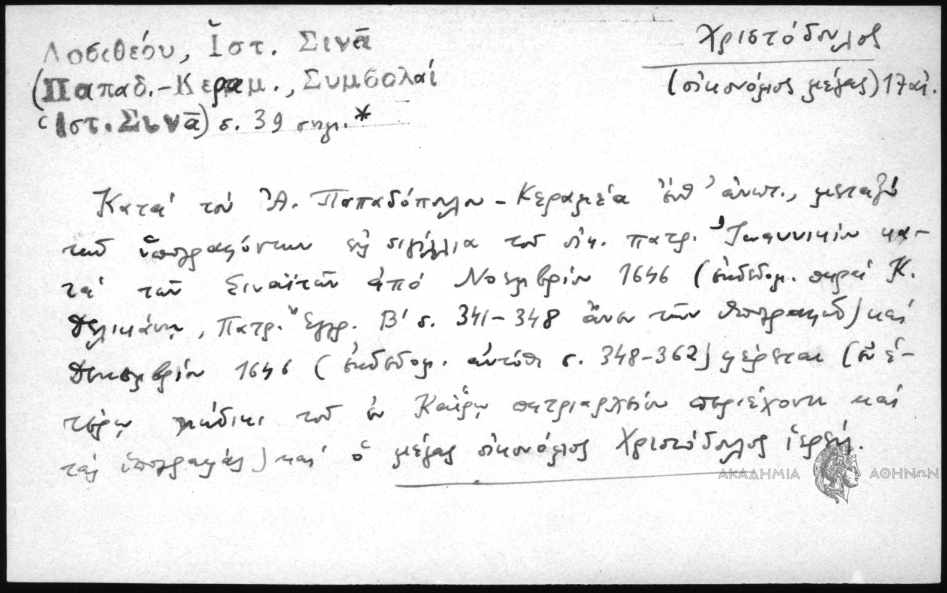 Δοσιθέου, Ἱστ. Σινᾶ
(Παπαδ.-Κεραμ., Συμβολαί
Ἱστ. Σινᾶ) σ. 39 σημ.*
Χριστόδουλος
(οἰκονόμος μέγας) 17 αἰ.
Κατά τόν Ἀ. Παπαδόπουλο-Κεραμέα ἐνθ' ἀνωτ., μεταξύ
τῶν ὑπογραφόντων εἰς σιγίλλια τοῦ οἰκ. πατρ. Ἰωαννικίου κα-
τά τῶν Σιναϊτῶν ἀπό Νοεμβρίου 1646 (ἐκδεδομ. παρά Κ.
Δελικάνῃ, Πατρ. Ἔγγρ. Β' σ. 341-348 ἄνευ τῶν ὑπογραφῶν) καί
Δεκεμβρίου 1646 (ἐκδεδομ. αὐτόθι σ. 348-362) φέρεται (ἐν ἑ-
τέρῳ κώδικι τοῦ ἐν Καΐρῳ πατριαρχείου περιέχοντι καί
τάς ὑπογραφάς) καί ὁ μέγας οἰκονόμος Χριστόδουλος ἱερεύς.
ΑΚΑΔΗΜΙΑ ΑΘΗΝΩΝ